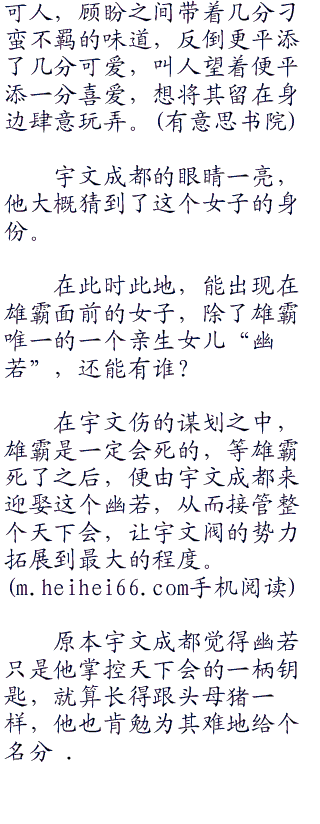 可人，顾盼之间带着几分刁
蛮不羁的味道，反倒更平添
了几分可爱，叫人望着便平
添一分喜爱，想将其留在身
边肆意玩弄。(有意思书院)
宇文成都的眼睛一亮，
他大概猜到了这个女子的身
份。
在此时此地，能出现在
雄霸面前的女子，除了雄霸
唯一的一个亲生女儿“幽
若”，还能有谁？
在宇文伤的谋划之中，
雄霸是一定会死的，等雄霸
死了之后，便由宇文成都来
迎娶这个幽若，从而接管整
个天下会，让宇文阀的势力
拓展到最大的程度。
(m.heihei66.com手机阅读)
原本宇文成都觉得幽若
只是他掌控天下会的一柄钥
匙，就算长得跟头母猪一
样，他也肯勉为其难地给个
名分 .